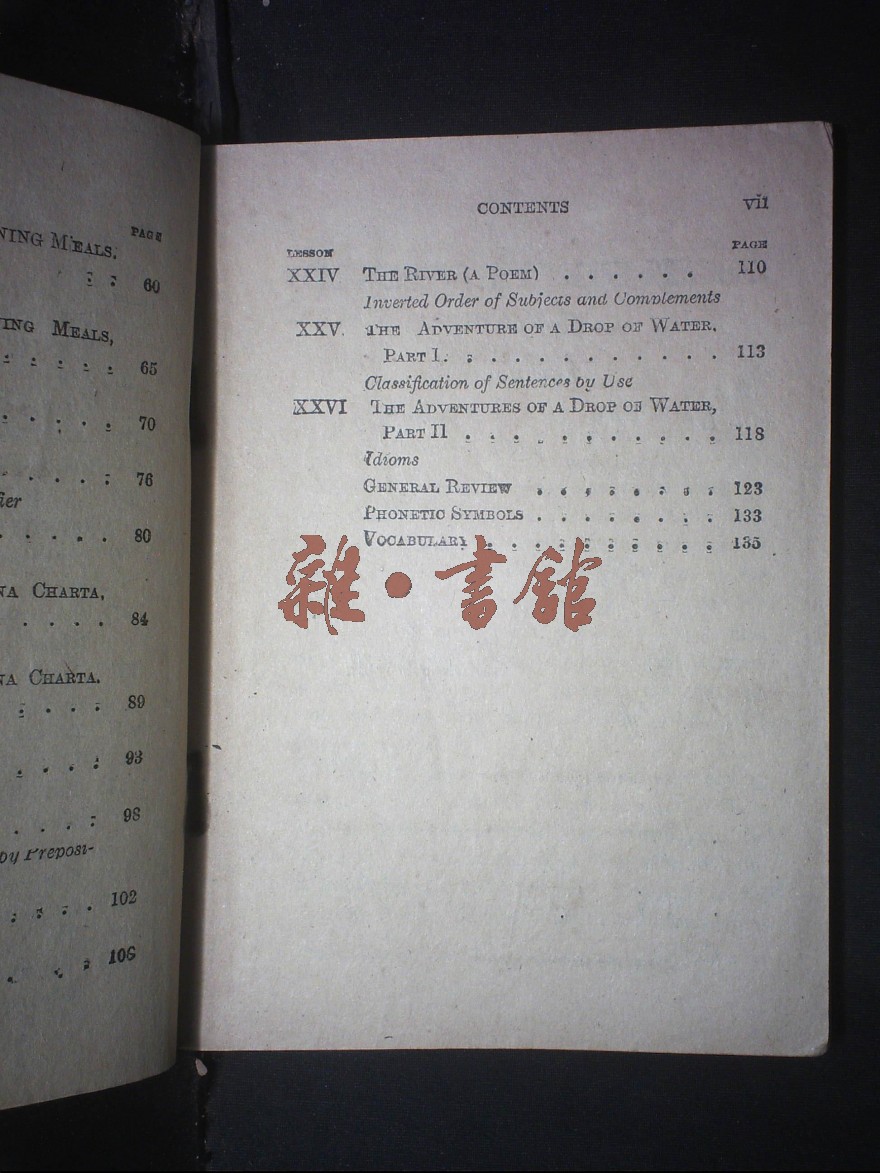 PAGE
NING MEALS,
60
ING MEALS,
65
70
76
80
NA CHARTA,
84
NA CHARTA.
89
93
98
by Preposi-
102
106
CONTENTS vii
LESSON PAGE
XXIV THE RIVER (A POEM) . . . . . . 110
Inverted Order of Subjects and Complements
XXV. THE ADVENTURE OF A DROP OF WATER.
PART I. . . . . . . . . . . . 113
Classification of Sentences by Use
XXVI THE ADVENTURES OF A DROP OF WATER,
PART II . . . . . . . . . . . 118
Idioms
GENERAL REVIEW . . . . . . . . 123
PHONETIC SYMBOLS . . . . . . . . 133
VOCABULARY . . . . . . . . . . 135
雜·書館